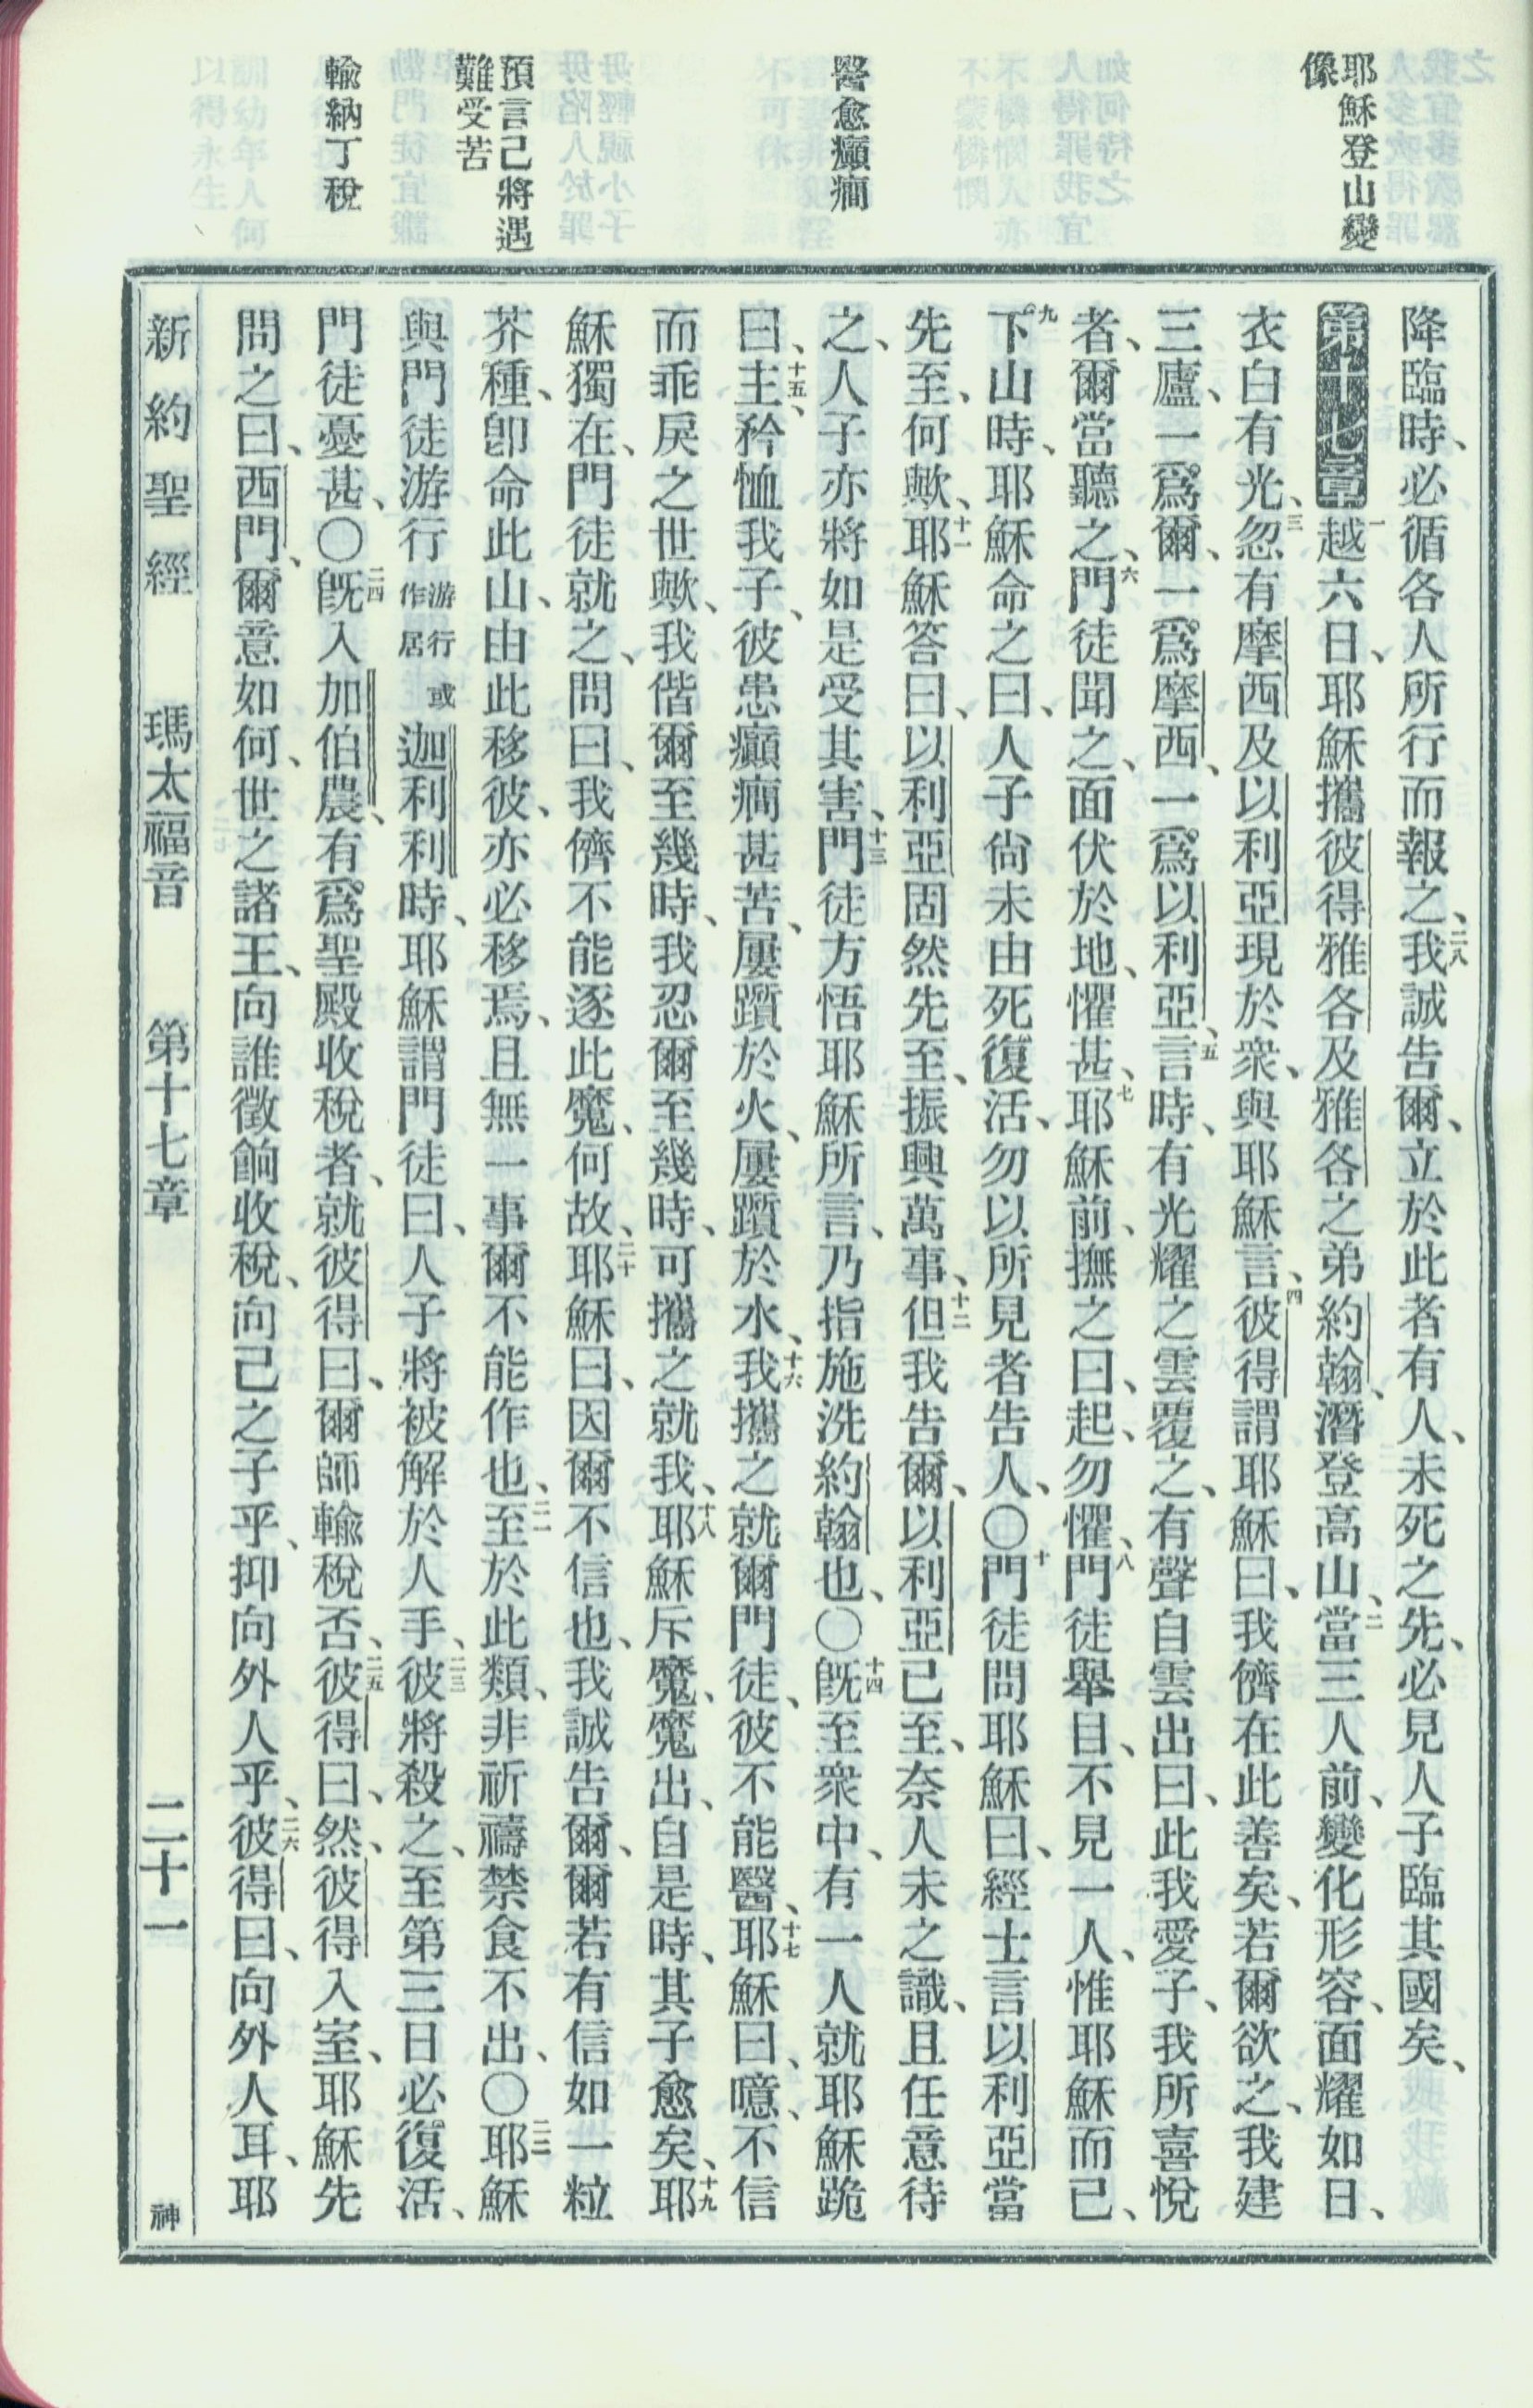 耶穌登山變
像
醫愈癲癇
預言己將遇
難受苦
輸納丁稅
降臨時、必循各人所行而報之、二八我誠告爾、立於此者有人、未死之先、必見人子臨其國矣、
第十七章 一越六日、耶穌攜彼得雅各及雅各之弟約翰、潛登高山、二當三人前、變化形容、面耀如日、
衣白有光、三忽有摩西及以利亞現於衆、與耶穌言、四彼得謂耶穌曰、我儕在此善矣、若爾欲之、我建
三廬、一爲爾、一爲摩西、一爲以利亞、五言時、有光耀之雲覆之、有聲自雲出曰、此我愛子、我所喜悅
者、爾當聽之、六門徒聞之、面伏於地、懼甚、七耶穌前、撫之曰、起、勿懼、八門徒舉目、不見一人、惟耶穌而已、
九下山時、耶穌命之曰、人子尙未由死復活、勿以所見者告人、〇十門徒問耶穌曰、經士言以利亞當
先至、何歟、十一耶穌答曰、以利亞固然先至、振興萬事、十二但我告爾、以利亞已至、奈人未之識、且任意待
之、人子亦將如是受其害、十三門徒方悟耶穌所言、乃指施洗約翰也、〇十四旣至衆中、有一人就耶穌跪
曰、十五主、矜恤我子、彼患癲癇甚苦、屢躓於火、屢躓於水、十六我攜之就爾門徒、彼不能醫、十七耶穌曰、噫、不信
而乖戾之世歟、我偕爾至幾時、我忍爾至幾時、可攜之就我、十八耶穌斥魔、魔出、自是時、其子愈矣、十九耶
穌獨在、門徒就之、問曰、我儕不能逐此魔、何故、二十耶穌曰、因爾不信也、我誠告爾、爾若有信如一粒
芥種、卽命此山、由此移彼、亦必移焉、且無一事爾不能作也、二一至於此類、非祈禱禁食不出、〇二二耶穌
與門徒游行游行或作居迦利利時、耶穌謂門徒曰、人子將被解於人手、二三彼將殺之、至第三日必復活、
門徒憂甚、〇二四旣入加伯農、有爲聖殿收稅者、就彼得曰、爾師輸稅否、二五彼得曰、然、彼得入室、耶穌先
問之曰、西門、爾意如何、世之諸王、向誰徵餉收稅、向己之子乎、抑向外人乎、二六彼得曰、向外人耳、耶
新約聖經 瑪太福音 第十七章 二十一 神